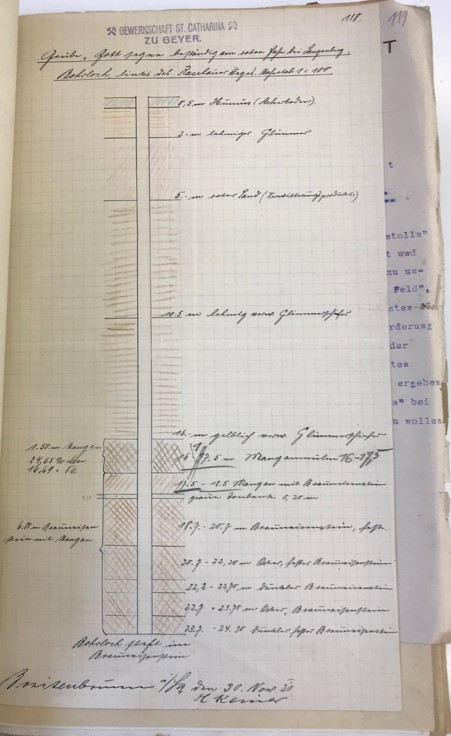 118.
119
⚒ GEWERKSCHAFT ST. CATHARINA ⚒
ZU GEYER.
T
Grube, Gott segne beständig am roten bei Langenberg
Bohrloch links des Raschauer Weges. Maßstab 1 : 100
0,5 m Humus (Ackerboden).
2. m lehmiger Glimmer
5. m roter Sand (Verwitterungsprodukt)
10.5 m lehmig verw. Glimmerschiefer
16. m gelblich verw. Glimmerschiefer
16 17.5 m Manganmulm 16-17,5
1.50 m Mangan
24,65 % Mn
16.69 " Fe
17.5 - 18.5 Mangan mit Brauneisenstein
graue Tonbank 0,20 m
18.7 - 20.7 m Brauneisenstein, fest
Brauneisen
stein mit Mangan
20.7 - 22,20 m Ocker, fester Brauneisenstein
22,2 - 22,70 m dunkler Brauneisenstein
22.7 - 23.70 m Ocker, Brauneisenstein
23.7. - 24.30 dunkler fester Brauneisenstein
Bohrloch steht im
Brauneisenstein
Breitenbrunn den 30. Nov. 20
t
stolln"
t und
zu
Feld",
rderung
der
tes
ergeben
" bei
u wollen